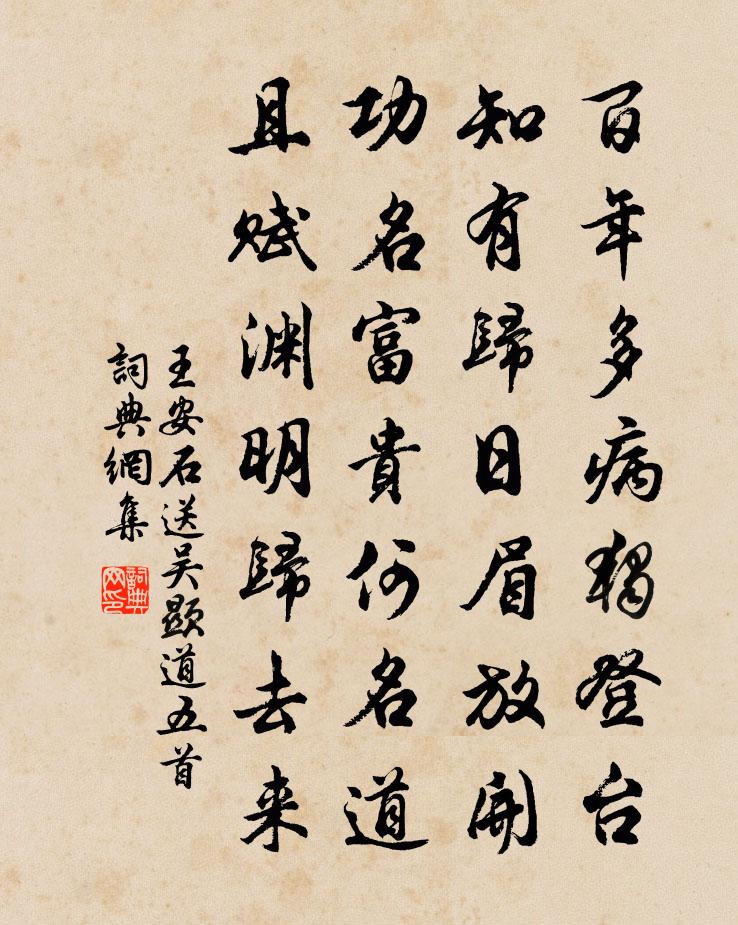 百年多病獨登台
知有歸日眉放開
功名富貴何名道
且賦渊明歸去来
王安石送吴顯道五首
詞典網集
詞典网印